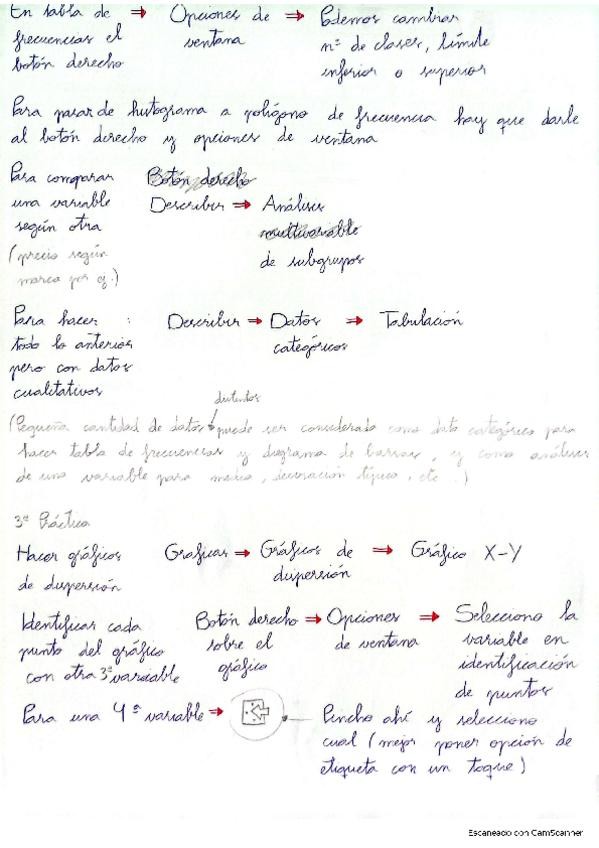 En tabla de ⇒ Opciones de ⇒ Podemos cambiar
frecuencias el ventana nº de clases, límite
botón derecho inferior o superior
Para pasar de histograma a polígono de frecuencia hay que darle
al botón derecho y opciones de ventana
Para comparar Botón derecho
una variable Describir ⇒ Análisis
según otra multivariable
(precio según de subgrupos
marca por ej.)
Para hacer : Describir ⇒ Datos ⇒ Tabulación
todo lo anterior categóricos
pero con datos
cualitativos
distintos
(Pequeña cantidad de datos puede ser considerada como dato categórico para
hacer tabla de frecuencias y diagrama de barras, y como análisis
de una variable para media, desviación típica, etc.)
3ª Práctica
Hacer gráficos Graficar ⇒ Gráficos de ⇒ Gráfico X-Y
de dispersión dispersión
Identificar cada Botón derecho ⇒ Opciones ⇒ Selecciono la
punto del gráfico sobre el de ventana variable en
con otra 3ª variable gráfico identificación
de puntos
Para una 4ª variable ⇒ Pincho ahí y selecciono
cual (mejor poner opción de
etiqueta con un toque)
Escaneado con CamScanner